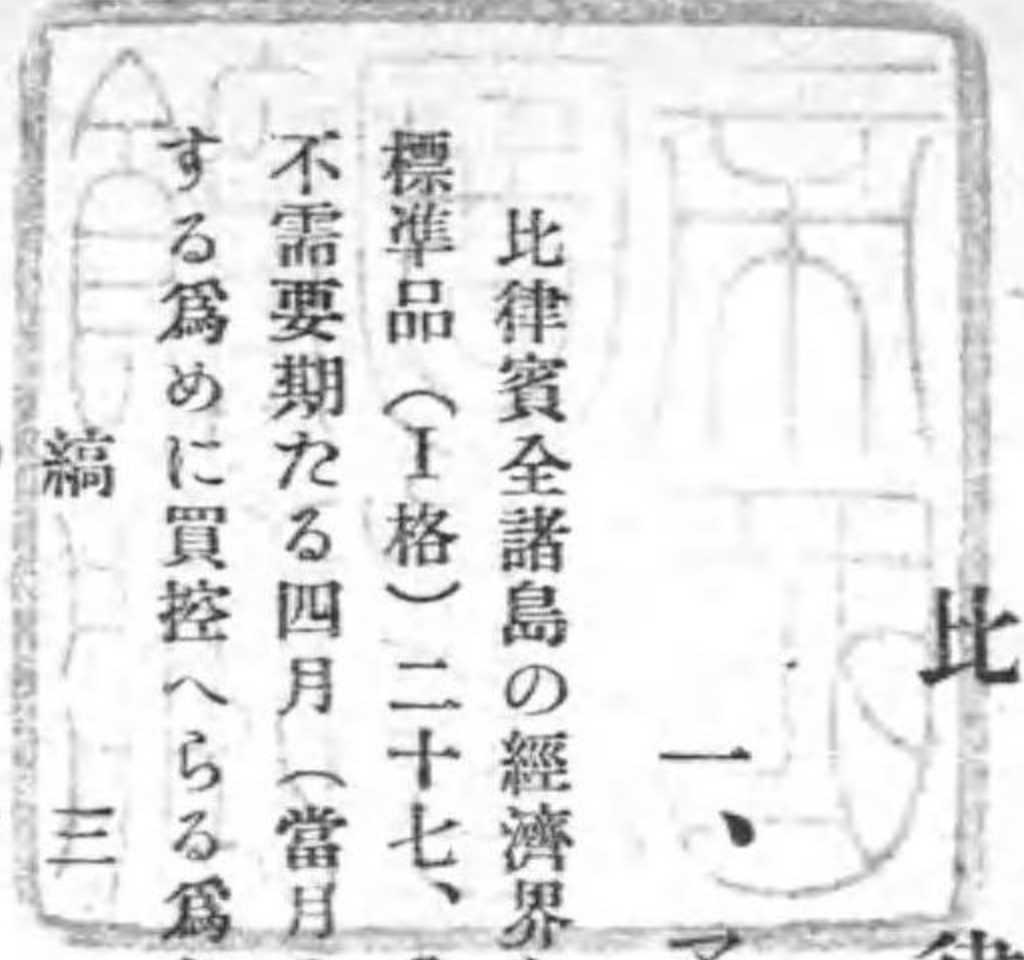 比律
一、マ
比律賓全諸島の經濟界
標準品（I格）二十七、
不需要期たる四月（當月
する爲めに買控へらる爲
縞三